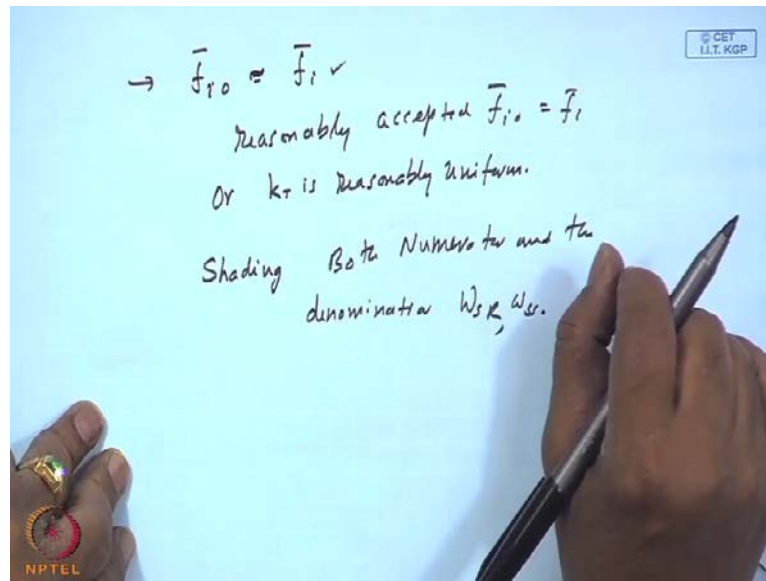 © CET
I.I.T. KGP
→ f̄io ≈ f̄i ✓
reasonably accepted f̄io = f̄i
Or kT is reasonably uniform.
Shading Both Numerator and the
denominator WSR, ωss.
NPTEL